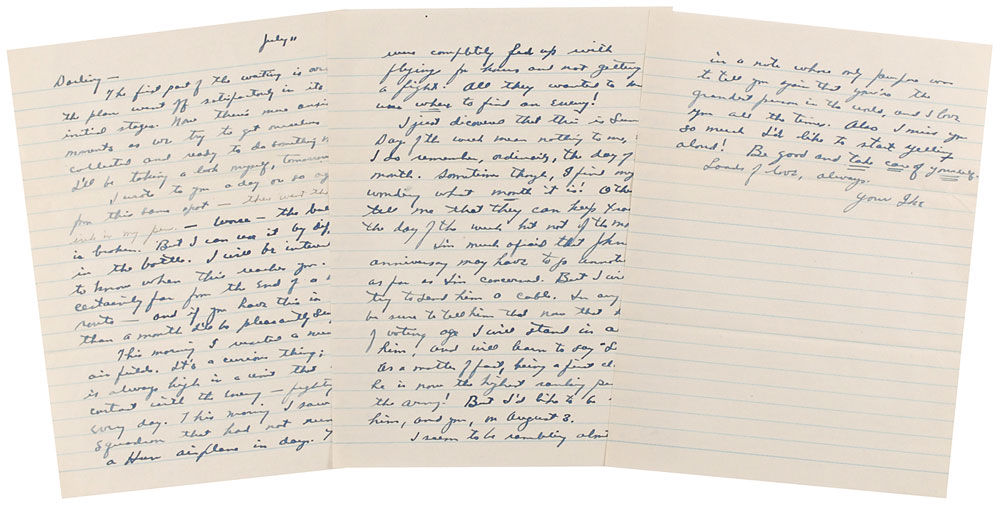 July 11
Darling —
The first part of the waiting is
the plan went off satisfactorily in its
initial stages. Now there's more
moments as we try to get ourselves
collected and ready to do something
I'll be taking a look myself, tomorrow
I wrote to you a day or so
from this same spot —
ink in my pen. — Worse — the
is broken. But I can use it by
in the bottle. I will be
to know when this reaches you.
certainly far from the end of a
route — and if you have this in
than a month I'd be pleasantly
This morning I visited a
air field. It's a curious thing;
is always high in a unit that
contact with the enemy — fighting
every day. This morning I saw
squadron that had not
a Hun airplane in days.
were completely fed up with
flying for hours and not getting
a fight! All they wanted to
was where to find an enemy!
I just discovered that this is
Day of the week means nothing to me,
I do remember, ordinarily, the day of
month. Sometimes though, I find
wondering what month it is!
tell me that they can keep
the day of the week but not of the
I'm much afraid that
anniversary may have to go
as far as I'm concerned. But I
try to send him a cable. In
be sure to tell him that now that
of voting age I will stand in
him, and will learn to say
As a matter of fact, being a first
he is now the highest ranking
the Army! But I'd like to be
him, and you, on August 3.
I seem to be rambling
in a note whose only purpose was
to tell you again that you're the
grandest person in the world, and I love
you all the time. Also I miss you
so much I'd like to start yelling
aloud! Be good and take care of yourself.
Loads of love, always.
Your Ike